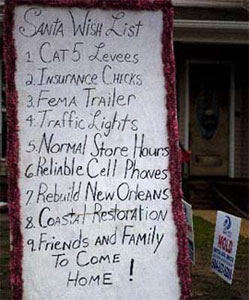 Santa Wish List
1. Cat 5 Levees
2. Insurance Checks
3. Fema Trailer
4. Traffic Lights
5. Normal Store Hours
6. Reliable Cell Phones
7. Rebuild New Orleans
8. Coastal Restoration
9. Friends and Family
To Come
Home!